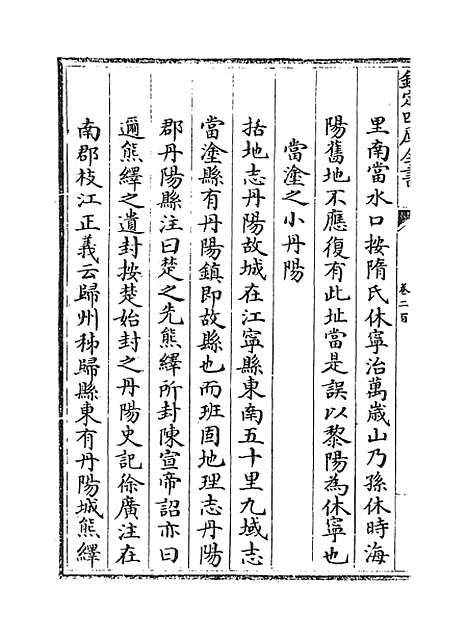 欽定四庫全書
卷二百
里南當水口按隋氏休寧治萬歲山乃孫休時海
陽舊地不應復有此址當是誤以黎陽為休寧也
當塗之小丹陽
括地志丹陽故城在江寧縣東南五十里九域志
當塗縣有丹陽鎮即故縣也而班固地理志丹陽
郡丹陽縣注曰楚之先熊繹所封陳宣帝詔亦曰
邇熊繹之遺封按楚始封之丹陽史記徐廣注在
南郡枝江正義云歸州秭歸縣東有丹陽城熊繹